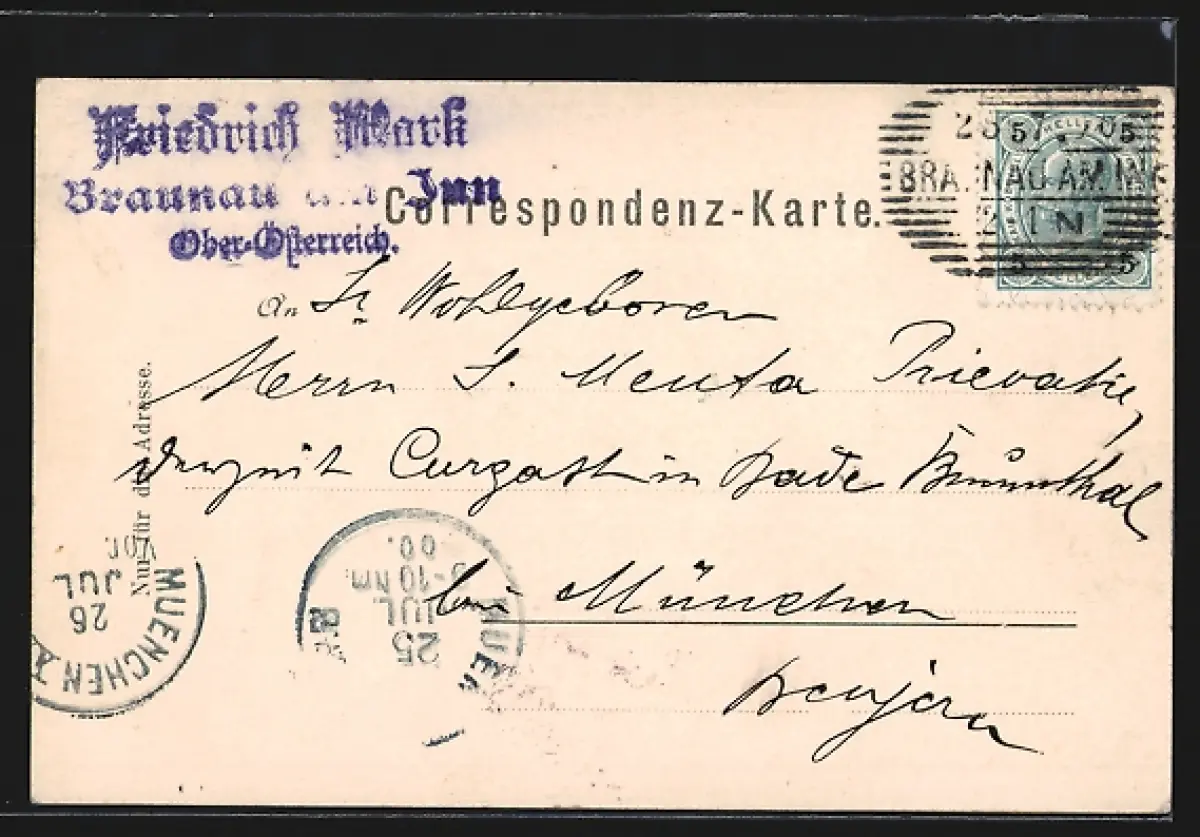 Friedrich Mark
Braunau am Inn
Ober-Österreich.
Correspondenz-Karte.
5 HELLER 5
BRAUNAU AM INN
5 HELLER 5
An Sr Wohlgeboren
Herrn S. Menta Privatier,
derzeit Curgast in Bade Brunnthal
bei München
Bayern
Nur für die Adresse.
MUENCHEN
26
JUL
Vor.
MUEN
25
JUL
9-10 Nm.
00.